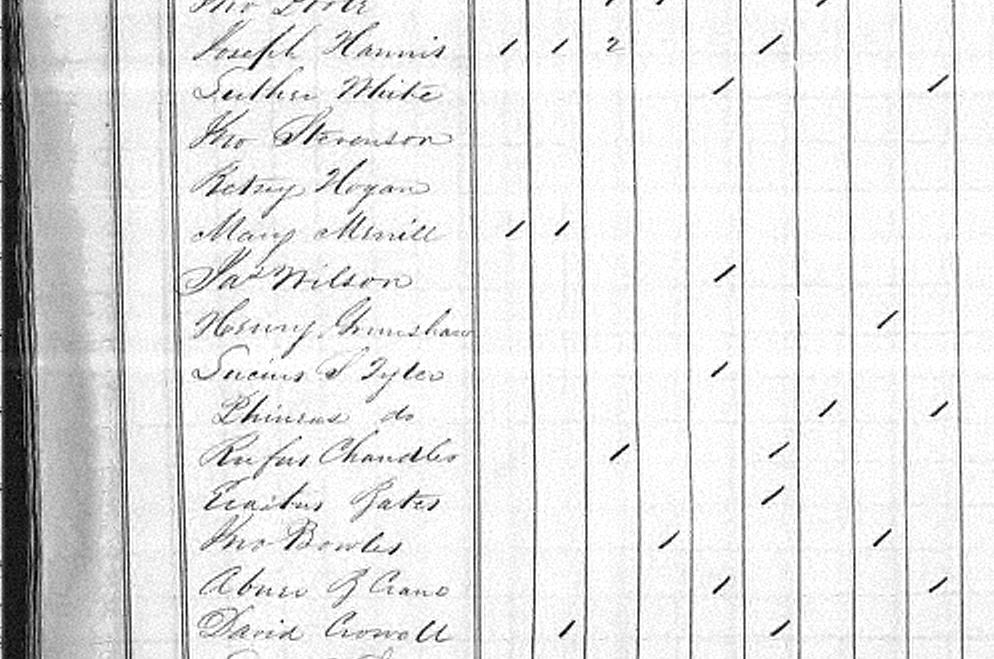 Jno Poole
Joseph Hannis 1 1 2 1
Luther White 1 1
Jno Stevenson
Betsey Hogan
Mary Merrill 1 1
Jas Wilson 1
Henry Grimshaw 1
Lucius S Tyler 1
Phineas do 1 1
Rufus Chandler 1 1
Erastus Gates 1
Jno Bowles 1 1
Abner B Crane 1 1
David Crowell 1 1